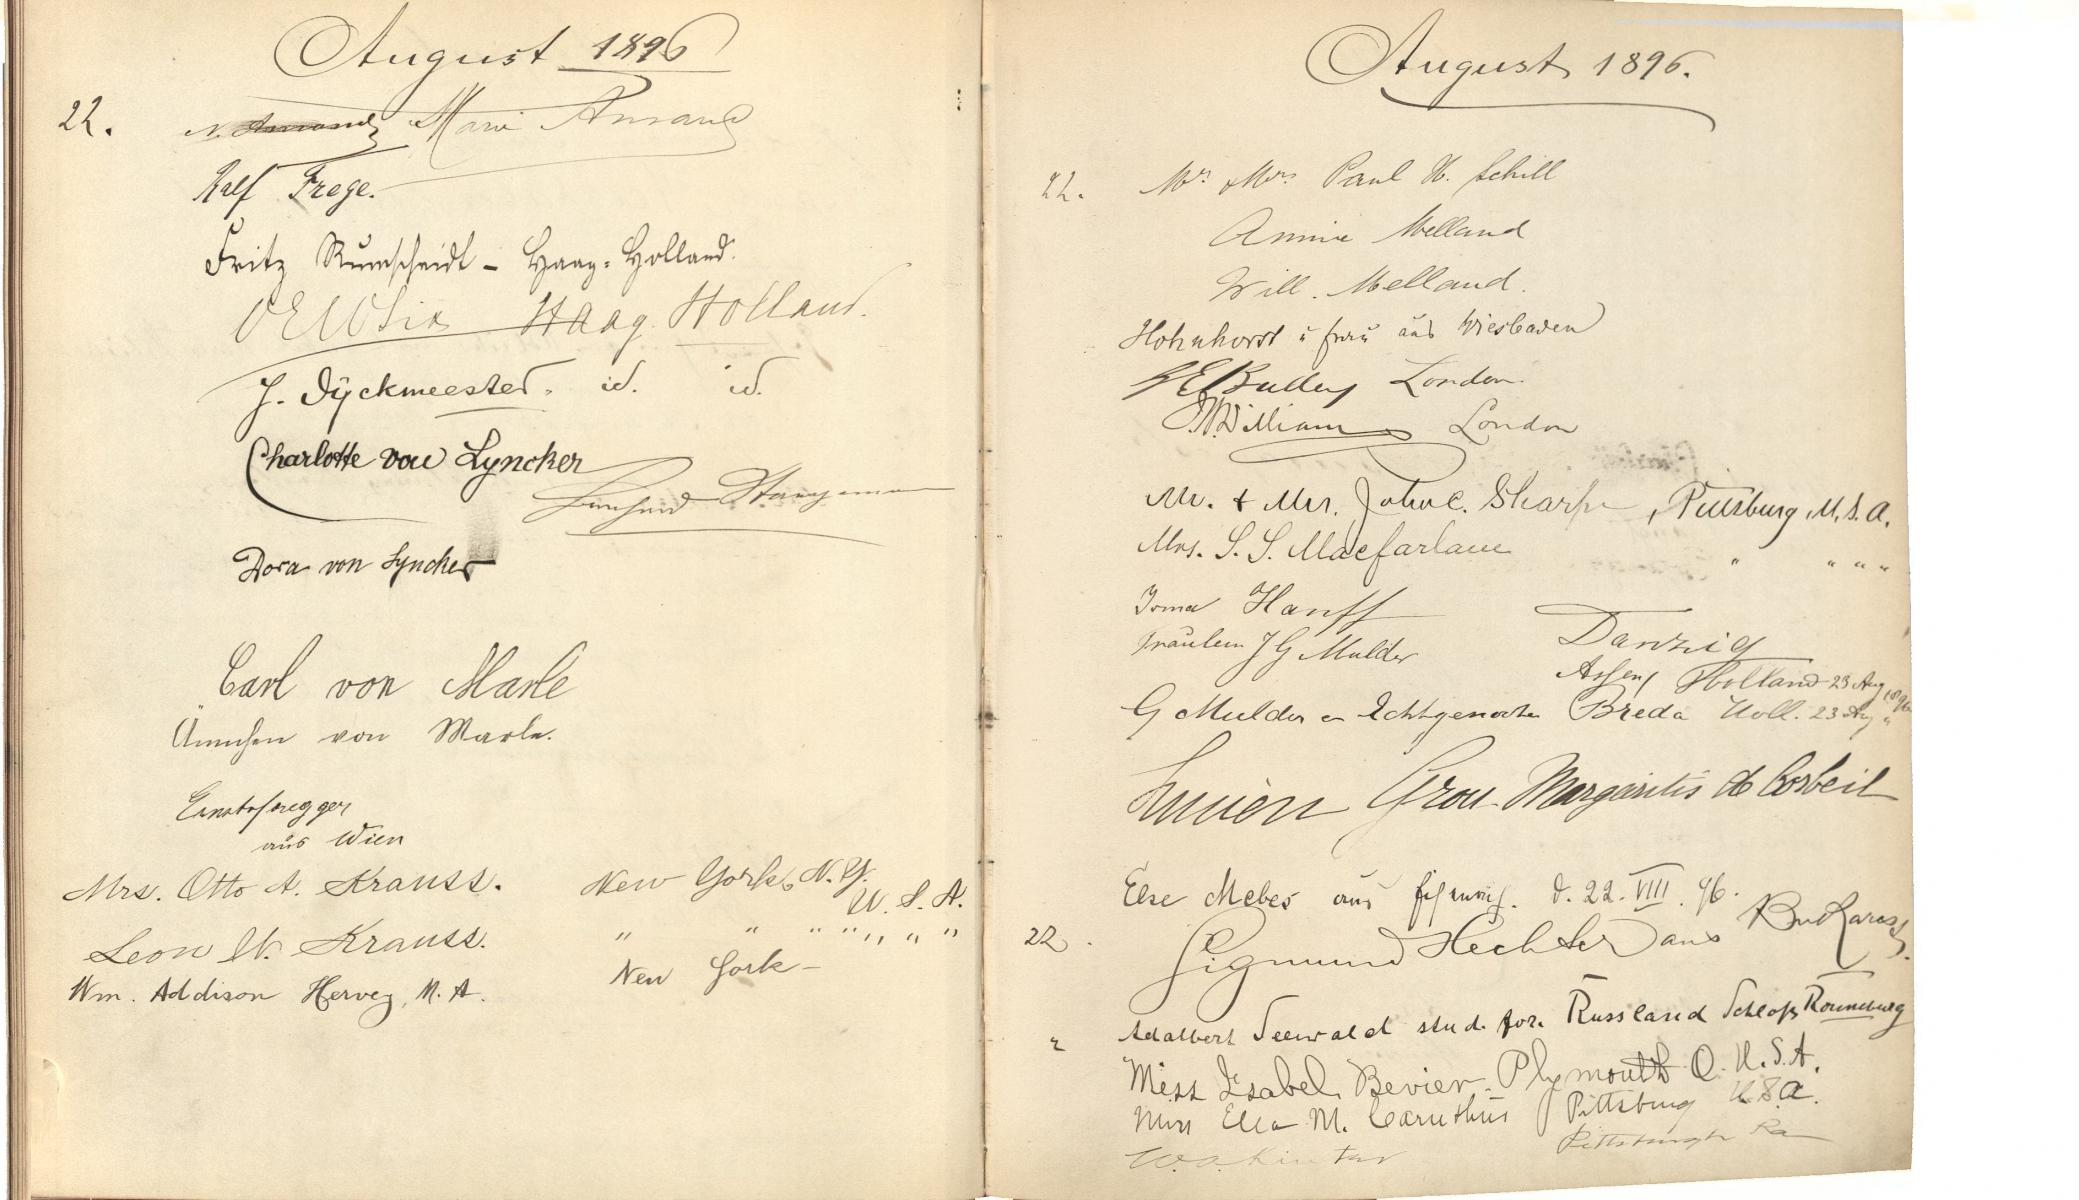 August 1896
22.
Marie
Ralf Frege.
Fritz Rumscheidt - Haag-Holland.
Haag. Holland.
J. Dyckmeester. id. id.
Charlotte von Lyncker
Dora von Lyncker
Carl von Marle
Ännchen von Marle.
aus Wien
Mrs. Otto A. Krauss. New York, N.Y.
U. S. A.
Leon W. Krauss. " " " " " " "
Wm. Addison Hervey, M. A. New York -
August 1896.
22. Mr & Mrs Paul H. Schill
Annie Melland
Will. Melland.
Hohnhorst u frau aus Wiesbaden
London.
London
Mr. & Mrs. John C. Sharpe, Pittsburg, U. S. A.
Mrs. S. S. Macfarlane " " " "
Irma Hanff Danzig
Fräulein J G Mulder Assen, Holland 23 Aug 1896
G Mulder en Echtgenoote Breda Holl. 23 Aug "
Lucien Grou Margaritis de Corbeil
Else Mebes aus d. 22. VIII. 96.
22. Sigmund Hechter aus Bukarest.
" Adalbert Seewald stud. for. Russland Schloß Ronneburg
Miss Isabel Bevier. Plymouth O. U.S.A.
Miss Ella M. Caruthers Pittsburg U.S.A.
Pittsburgh Pa